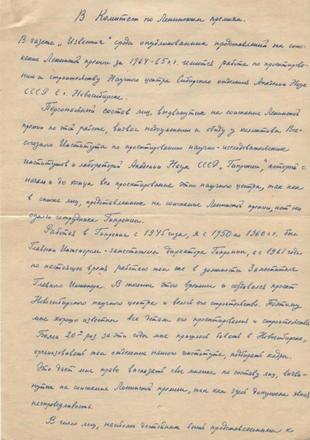 В Комитет по Ленинским премиям.
В газете „Известия" среди опубликованных представлений на соис-
кание Ленинской премии за 1964-65 г. имеется работа по проектирова-
нию и строительству Научного центра Сибирского отделения Академии Наук
СССР в г. Новосибирске.
Персональный состав лиц, выдвинутых на соискание Ленинской
премии по этой работе, вызвал недоумение и обиду у коллектива Все-
союзного Института по проектированию научно-исследовательских
институтов и лабораторий Академии Наук СССР „Гипронии", который с
начала и до конца вел проектирование этого научного центра, так как
в списке лиц, представленных на соискание Ленинской премии, нет ни
одного сотрудника Гипронии.
Работая в Гипронии с 1945 года, я с 1950 по 1960 г.г. был
Главным Инженером - заместителем директора Гипронии, а с 1961 года
по настоящее время работаю там же в должности Заместителя
Главного Инженера. В течение этого времени и создавался проект
Новосибирского научного центра и велось его строительство. Поэтому
мне хорошо известны все этапы его проектирования и строительства.
Более 20 раз за эти годы мне пришлось бывать в Новосибирске,
организовывать там отделение нашего института, подбирать кадры.
Это дает мне право высказать свое мнение по составу лиц, выдви-
нутых на соискание Ленинской премии, так как здесь допущена явная
несправедливость.
В число лиц, наиболее достойных быть представленными к